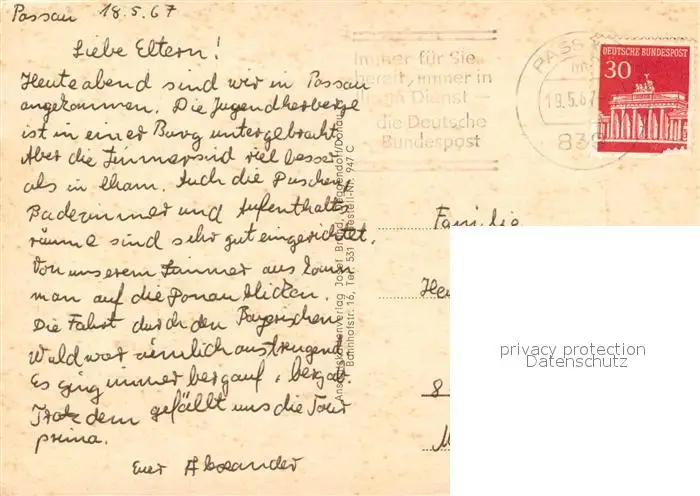 Passau 18.5.67
Liebe Eltern!
Heute abend sind wir in Passau
angekommen. Die Jugendherberge
ist in einer Burg untergebracht.
Aber die Zimmer sind viel besser
als in Cham. Auch die Duschen,
Badezimmer und Aufenthalts
räume sind sehr gut eingerichtet.
Von unserem Zimmer aus kann
man auf die Donau blicken.
Die Fahrt durch den Bayerischen
Wald war ziemlich anstrengend.
Es ging immer bergauf, bergab.
Trotzdem gefällt uns die Tour
prima.
Euer Alexander
Immer für Sie
bereit, immer in
Dienst -
die Deutsche
Bundespost
PASS
19.5.67
839
DEUTSCHE BUNDESPOST
30
Ansichtskartenverlag Josef Brand, Deggendorf/Donau
Bahnhofstr. 16, Tel. 531 Bestell-Nr. 947 C
Familie
He
8
M
privacy protection
Datenschutz